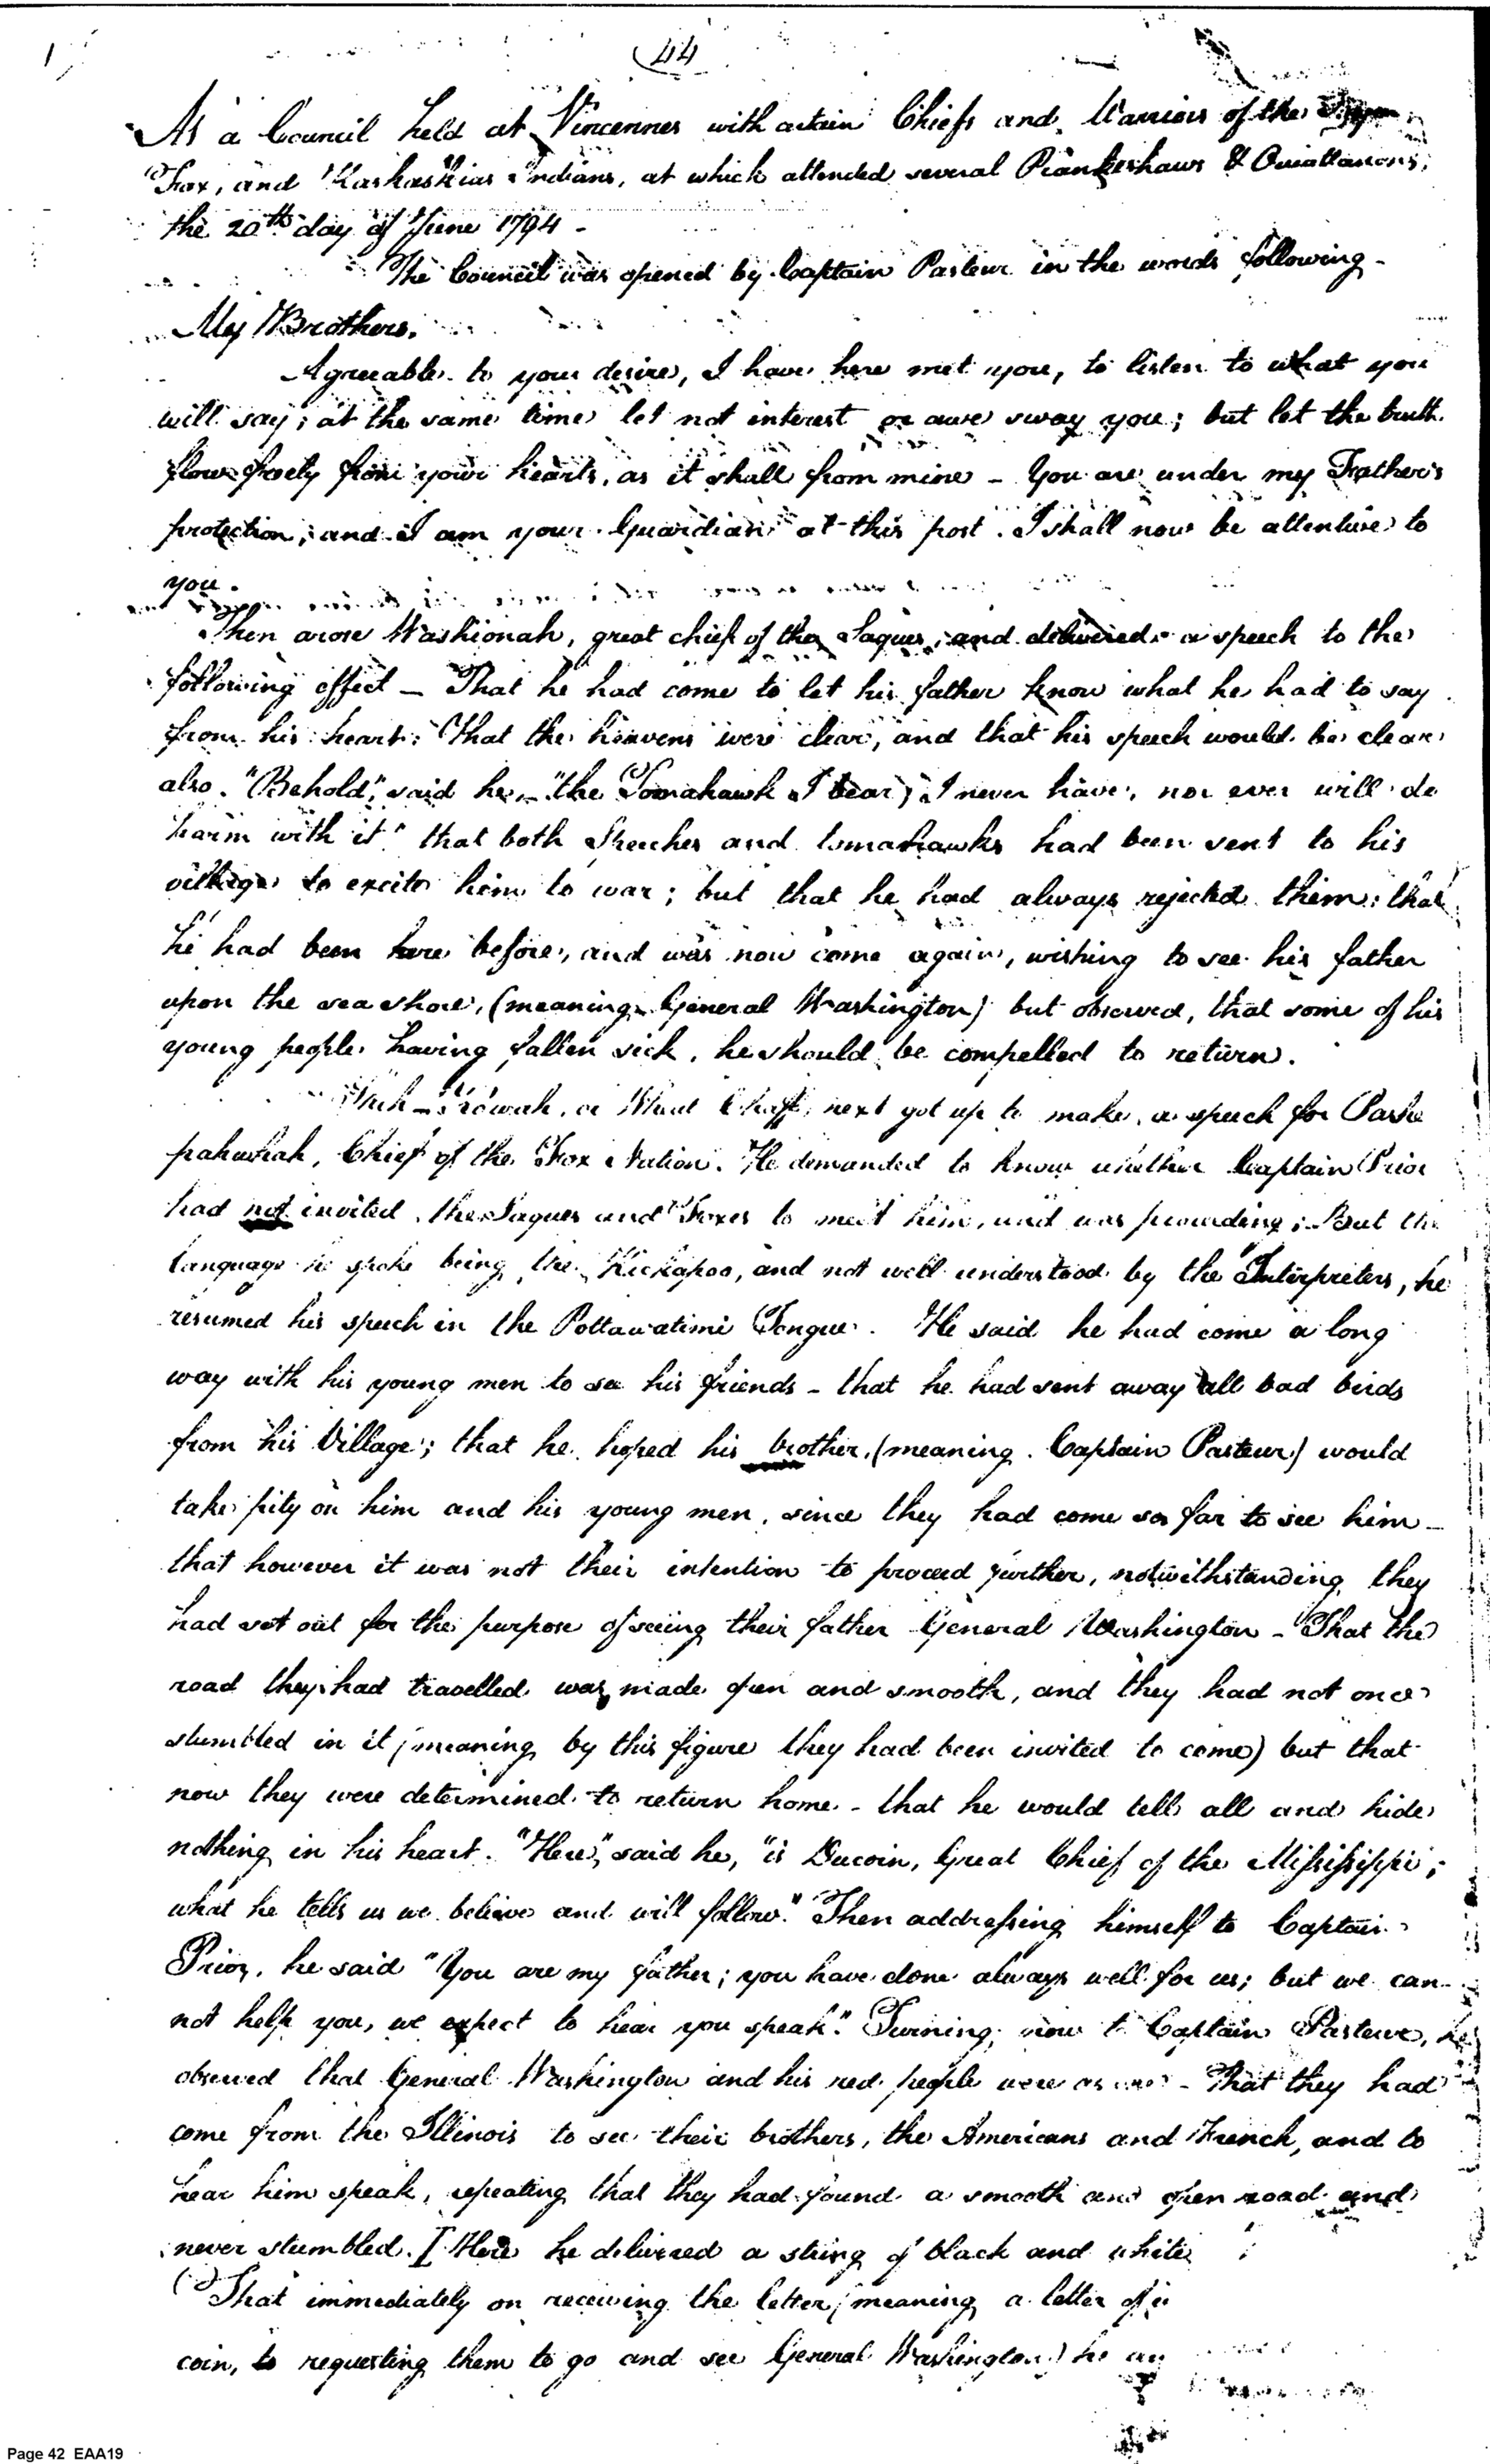 44
At a Council held at Vincennes with certain Chiefs and Warriors of the
Fox, and Kaskaskias Indians, at which attended several Piankeshaws & Ouiattanons,
the 20th day of June 1794 -
The Council was opened by Captain Pasteur in the words following -
My Brothers.
Agreeable to your desire, I have here met you, to listen to what you
will say; at the same time let not interest or awe sway you; but let the truth
flow freely from your hearts, as it shall from mine - You are under my Father's
protection; and I am your Guardian at this post. I shall now be attentive to
you.
Then arose Washionah, great chief of the Saques, and delivered a speech to the
following effect - That he had come to let his father know what he had to say
from his heart; That the heavens were clear, and that his speech would be clear
also. "Behold," said he, "the Tomahawk I bear; I never have, nor ever will do
harm with it" that both Speeches and tomahawks had been sent to his
village to excite him to war; but that he had always rejected them: that
he had been here before, and was now come again, wishing to see his father
upon the sea shore, (meaning General Washington) but observed, that some of his
young people having fallen sick, he should be compelled to return.
next got up to make a speech for
Chief of the Fox Nation. He demanded to know whether Captain Prior
had not invited the Saques and Foxes to meet him, and was proceeding; But the
language he spoke being the Kickapoo, and not well understood by the Interpreters, he
resumed his speech in the Pottawatimi Tongue. He said he had come a long
way with his young men to see his friends - that he had sent away all bad birds
from his Village; that he hoped his brother, (meaning Captain Pasteur) would
take pity on him and his young men, since they had come so far to see him -
that however it was not their intention to proceed further, notwithstanding they
had set out for the purpose of seeing their father General Washington - That the
road they had travelled was made open and smooth, and they had not once
stumbled in it (meaning by this figure they had been invited to come) but that
now they were determined to return home - that he would tell all and hide
nothing in his heart. "Here," said he, "is Ducoin, Great Chief of the Mississippi;
what he tells us we believe and will follow." Then addressing himself to Captain
Prior, he said "You are my father; you have done always well for us; but we can
not help you, we expect to hear you speak." Turning now to Captain Pasteur, he
observed that General Washington and his red people were as one - That they had
come from the Illinois to see their brothers, the Americans and French, and to
hear him speak, repeating that they had found a smooth and open road and
never stumbled. [Here he delivered a string of black and white
That immediately on receiving the letter (meaning a letter of
coin, to requesting them to go and see General Washington) he
Page 42 EAA19